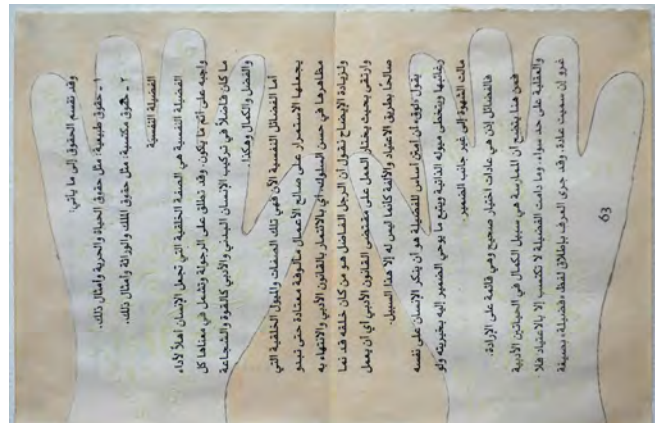 وقد تقسم الحقوق إلى ما يأتي:
١ - حقوق طبيعية، مثل حقوق الحياة والحرية وأمثال ذلك.
٢ - حقوق مكتسبة، مثل حقوق الملك والوراثة وأمثال ذلك.
الفضيلة النفسية
الفضيلة النفسية هي الصفة الخلقية التي تجعل الإنسان أهلاً لأداء
واجبه على أتم ما يكون. وقد تطلق على الرجولة وتشمل في معناها كل
ما كان فاضلاً في تركيب الإنسان البدني والأدبي كالقوة والشجاعة
والفضل والكمال وهكذا.
أما الفضائل النفسية الآن فهي تلك الصفات والميول الخلقية التي
يجعلها الاستمرار على صالح الأعمال مألوفة معتادة حتى تبدو
مظاهرها في حسن السلوك، أي بالائتمار بالقانون الأدبي والانتهاء به
ولزيادة الإيضاح نقول أن الرجل الفاضل هو من كان خلقه قد نما
وارتقى بحيث يختار العمل على مقتضى القانون الأدبي أي أن يعمل
صالحاً بطريق الاعتياد والألفة كأنما ليس له إلا هذا السبيل.
يقول لوك، أن أمتن أساس للفضيلة هو أن ينكر الإنسان على نفسه
رغباتها ويتخطى ميوله الذاتية ويتبع ما يوحي الضمير إليه بخيريته ولو
مالت الشهوة إلى غير جانب الضمير.
فالفضائل إذن هي عادات اختيار صحيح وهي قائمة على الإرادة.
فمن هنا يتضح أن الممارسة هي سبيل الكمال في الحياتين الأدبية
والعقلية على حد سواء. وما دامت الفضيلة لا تكتسب إلا بالاعتياد فلا
غرو إن سميت عادة. وقد جرى العرف بإطلاق لفظ «فضيلة» بصيغة
63